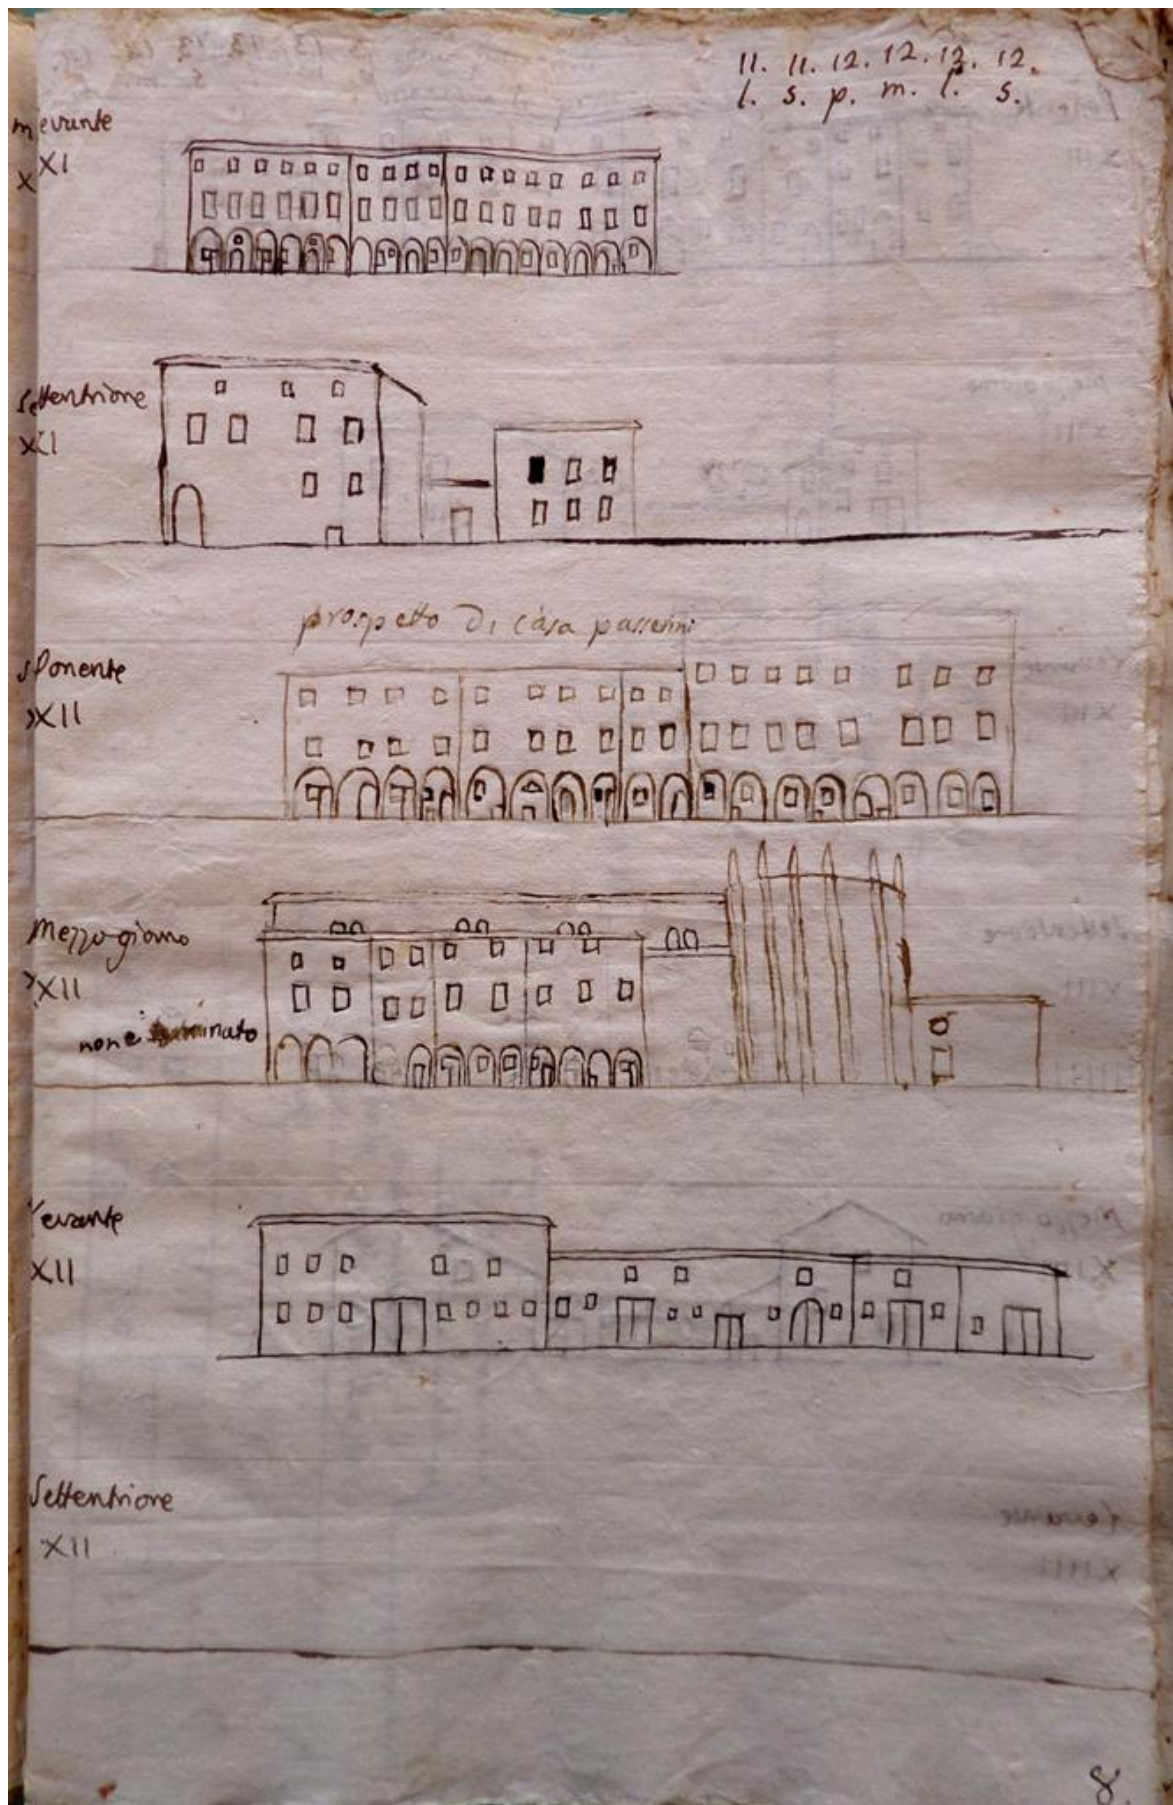 11. 11. 12. 12. 12. 12.
l. s. p. m. l. s.
levante
XI
settentrione
XI
prospetto di casa passerini
ponente
XII
mezzo giorno
XII
non è
levante
XII
Settentrione
XII
8.